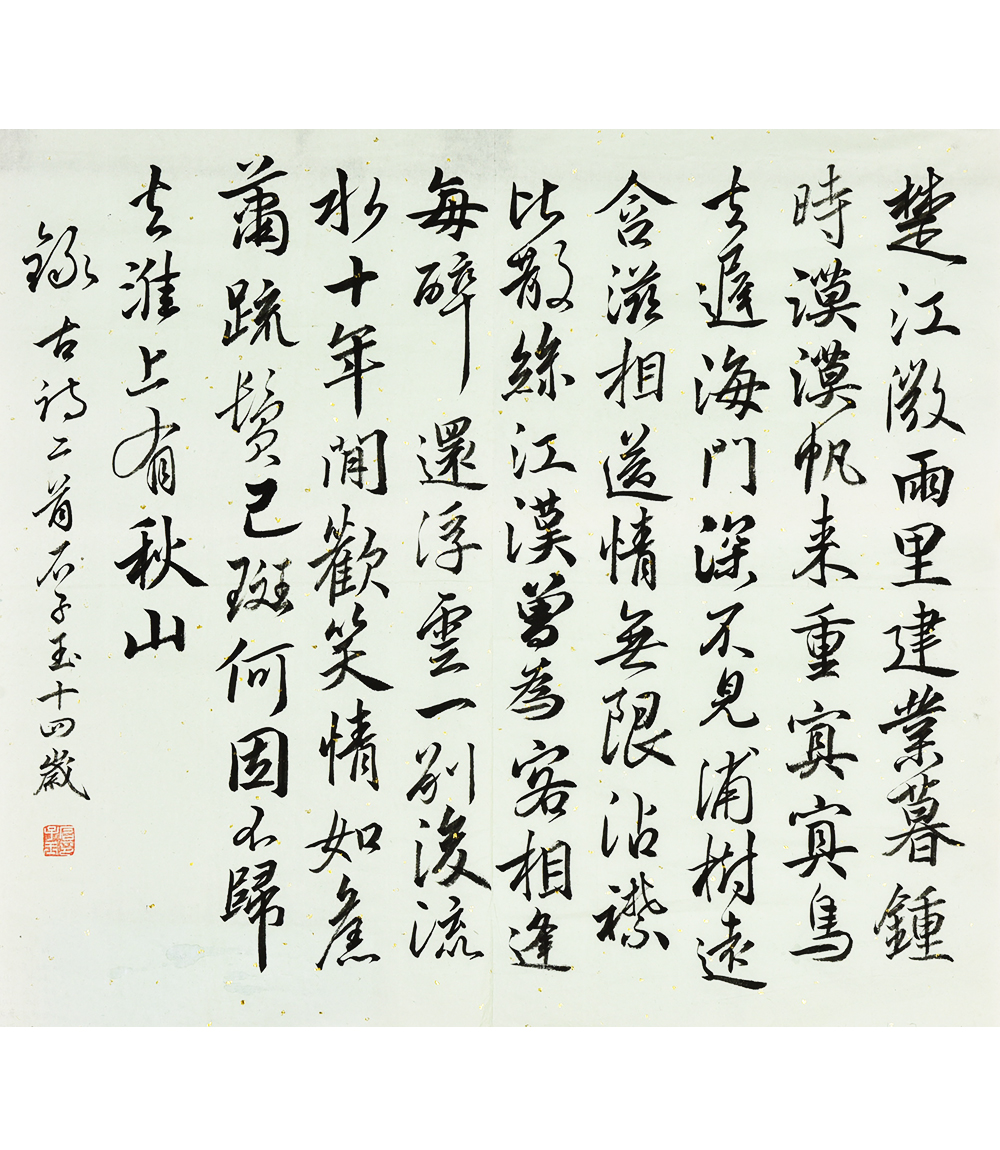 楚江微雨里建業暮鍾
時漠漠帆来重冥冥鳥
去遲海門深不見浦樹遠
含滋相送情無限沾襟
比散絲江漢曾為客相逢
每醉還浮雲一別後流
水十年間歡笑情如舊
蕭疏鬢已斑何因不歸
去淮上有秋山
錄古詩二首石子玉十四歲